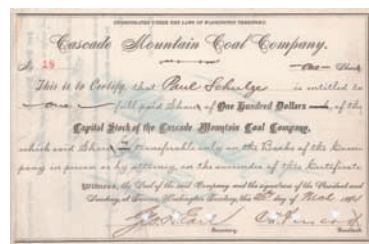 INCORPORATED UNDER THE LAWS OF WASHINGTON TERRITORY.
Cascade Mountain Coal Company.
No 18 One Share
This is to Certify, that Paul Schulze is entitled to
one full paid Share of One Hundred Dollars each, of the
Capital Stock of the Cascade Mountain Coal Company,
which said Share is transferable only on the Books of the Com
pany in person or by attorney on the surrender of this Certificate.
Witness, the Seal of the said Company and the signatures of the President and
Secretary, at Tacoma, Washington Territory, this day of 18
Secretary. President.